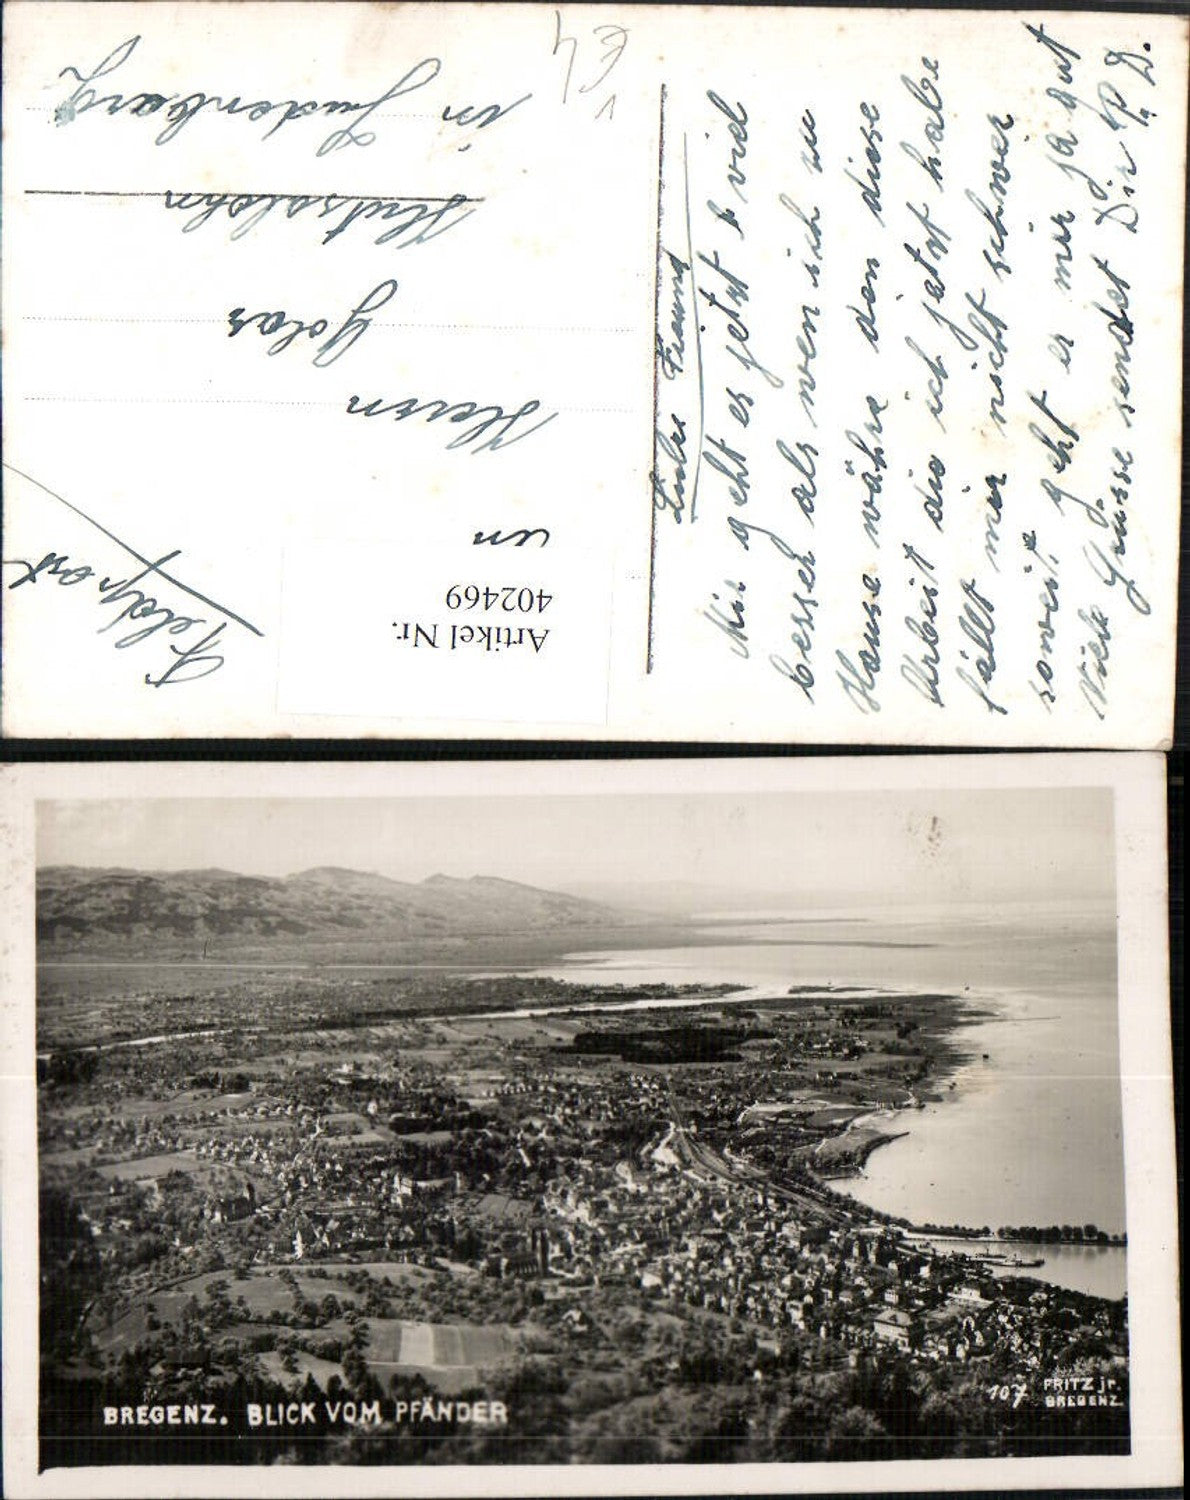 Feldpost
Artikel Nr.
402469
an
Herrn
in Judenburg
Liebe
Mir geht es jetzt viel
besser als wen ich zu
Hause währe den diese
Arbeit die ich jetzt habe
fällt mir nicht schwer
soweit geht es mir ja gut
Viele Grüsse sendet Dir
BREGENZ. BLICK VOM PFÄNDER
107 FRITZ jr.
BREGENZ